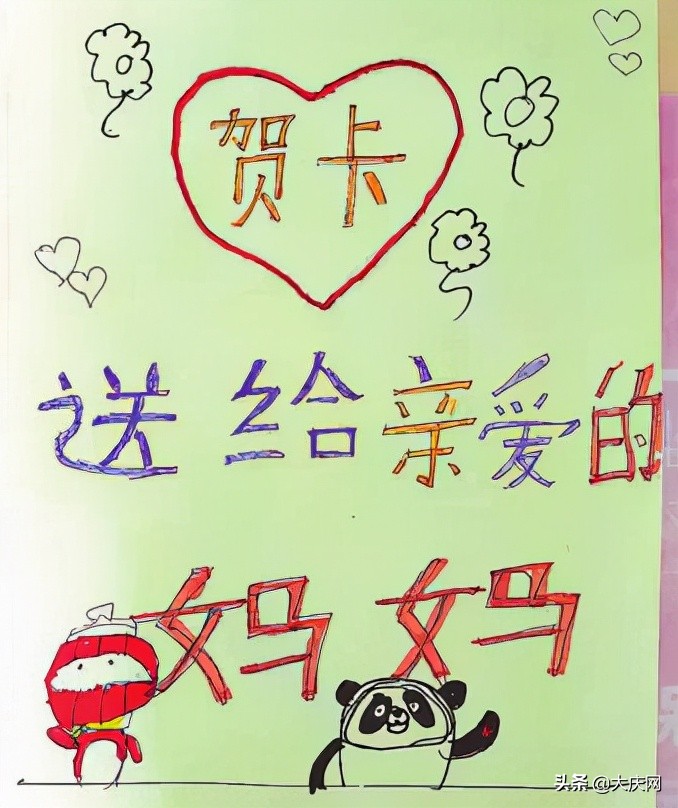 贺卡
送给亲爱的
妈妈
头条 @大庆网